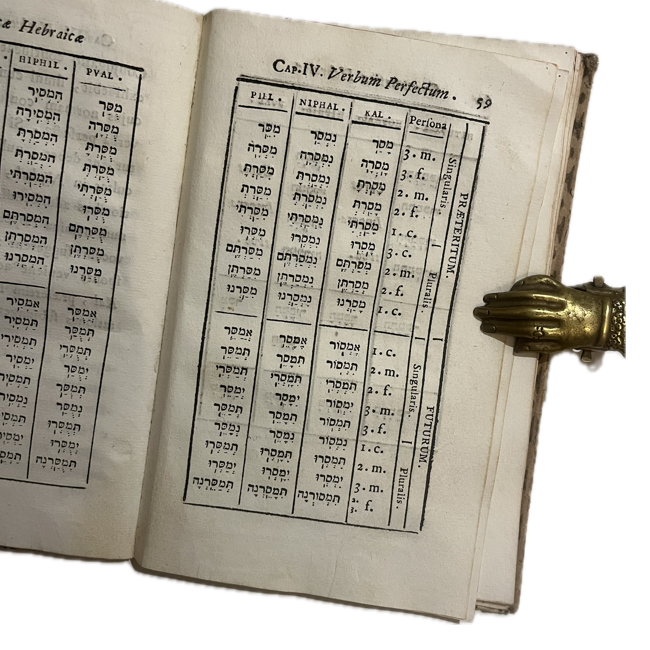 æ Hebraicæ
HIPHIL. PVAL.
הִמְסִיר מֻסַּר
הִמְסִירָה מֻסְּרָה
הִמְסַרְתָּ מֻסַּרְתָּ
הִמְסַרְתְּ מֻסַּרְתְּ
הִמְסַרְתִּי מֻסַּרְתִּי
הִמְסִירוּ מֻסְּרוּ
הִמְסַרְתֶּם מֻסַּרְתֶּם
הִמְסַרְתֶּן מֻסַּרְתֶּן
הִמְסַרְנוּ מֻסַּרְנוּ
אַמְסִיר אֲמֻסַּר
תַמְסִיר תְּמֻסַּר
תַמְסִירִי תְּמֻסְּרִי
יַמְסִיר יְמֻסַּר
תַמְסִיר תְּמֻסַּר
נַמְסִיר נְמֻסַּר
תַמְסִי תְּמֻסְּרוּ
יַמְסִי יְמֻסְּרוּ
תַמְסֵ תְּמֻסַּרְנָה
CAP.IV. Verbum Perfectum. 59
PIEL. NIPHAL. KAL. Persona
מִסֵּר נִמְסַר מָסַר 3. m.
מִסְּרָה נִמְסְרָה מָסְרָה 3. f.
מִסַּרְתָּ נִמְסַרְתָּ מָסַרְתָּ 2. m.
מִסַּרְתְּ נִמְסַרְתְּ מָסַרְתְּ 2. f.
מִסַּרְתִּי נִמְסַרְתִּי מָסַרְתִּי 1. c.
מִסְּרוּ נִמְסְרוּ מָסְרוּ 3. c.
מִסַּרְתֶּם נִמְסַרְתֶּם מְסַרְתֶּם 2. m.
מִסַּרְתֶּן נִמְסַרְתֶּן מְסַרְתֶּן 2. f.
מִסַּרְנוּ נִמְסַרְנוּ מָסַרְנוּ 1. c.
Singularis. Pluralis
PRÆTERITUM.
אֲמַסֵּר אֶמָּסֵר אֶמְסוֹר 1. c.
תְּמַסֵּר תִּמָּסֵר תִּמְסוֹר 2. m.
תְּמַסְּרִי תִּמָּסְרִי תִּמְסְרִי 2. f.
יְמַסֵּר יִמָּסֵר יִמְסוֹר 3. m.
תְּמַסֵּר תִּמָּסֵר תִּמְסוֹר 3. f.
נְמַסֵּר נִמָּסֵר נִמְסוֹר 1. c.
תְּמַסְּרוּ תִּמָּסְרוּ תִּמְסְרוּ 2. m.
יְמַסְּרוּ יִמָּסְרוּ יִמְסְרוּ 3. m.
תְּמַסֵּרְנָה תִּמָּסַרְנָה תִּמְסוֹרְנָה 2. 3. f.
Singularis. Pluralis.
FUTURUM.